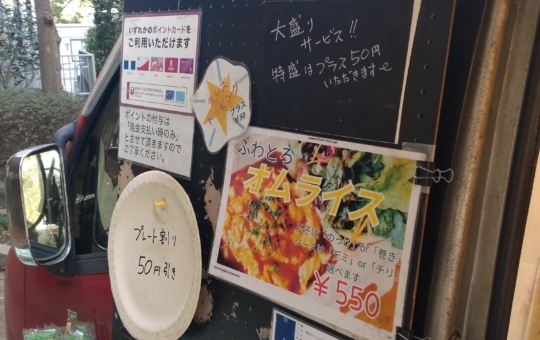 いずれかのポイントカードを
ご利用いただけます
ポイントの付与は
「現金支払い時のみ」
とさせて頂きますので
ご了承ください。
プラス
大盛り
サービス!!
特盛はプラス50円
いただきます
ふわとろ
オムライス
or「巻き
or「チリ
選べます
¥550
プレート割り
50円引き